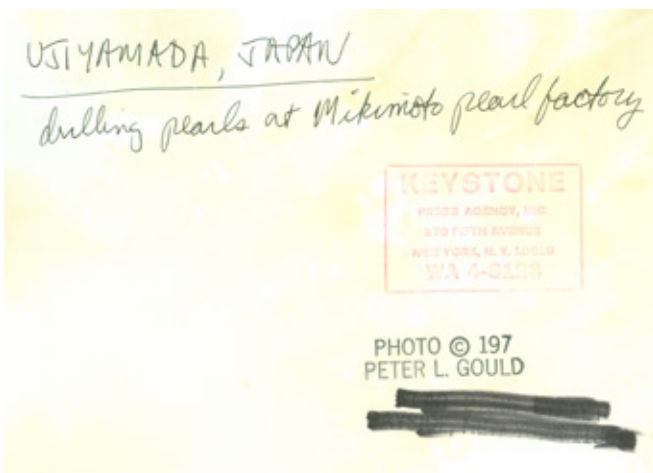 UJIYAMADA, JAPAN
drilling pearls at Mikimoto pearl factory
KEYSTONE
PRESS AGENCY, INC.
170 FIFTH AVENUE
NEW YORK, N. Y. 10010
WA 4-8123
PHOTO © 197
PETER L. GOULD